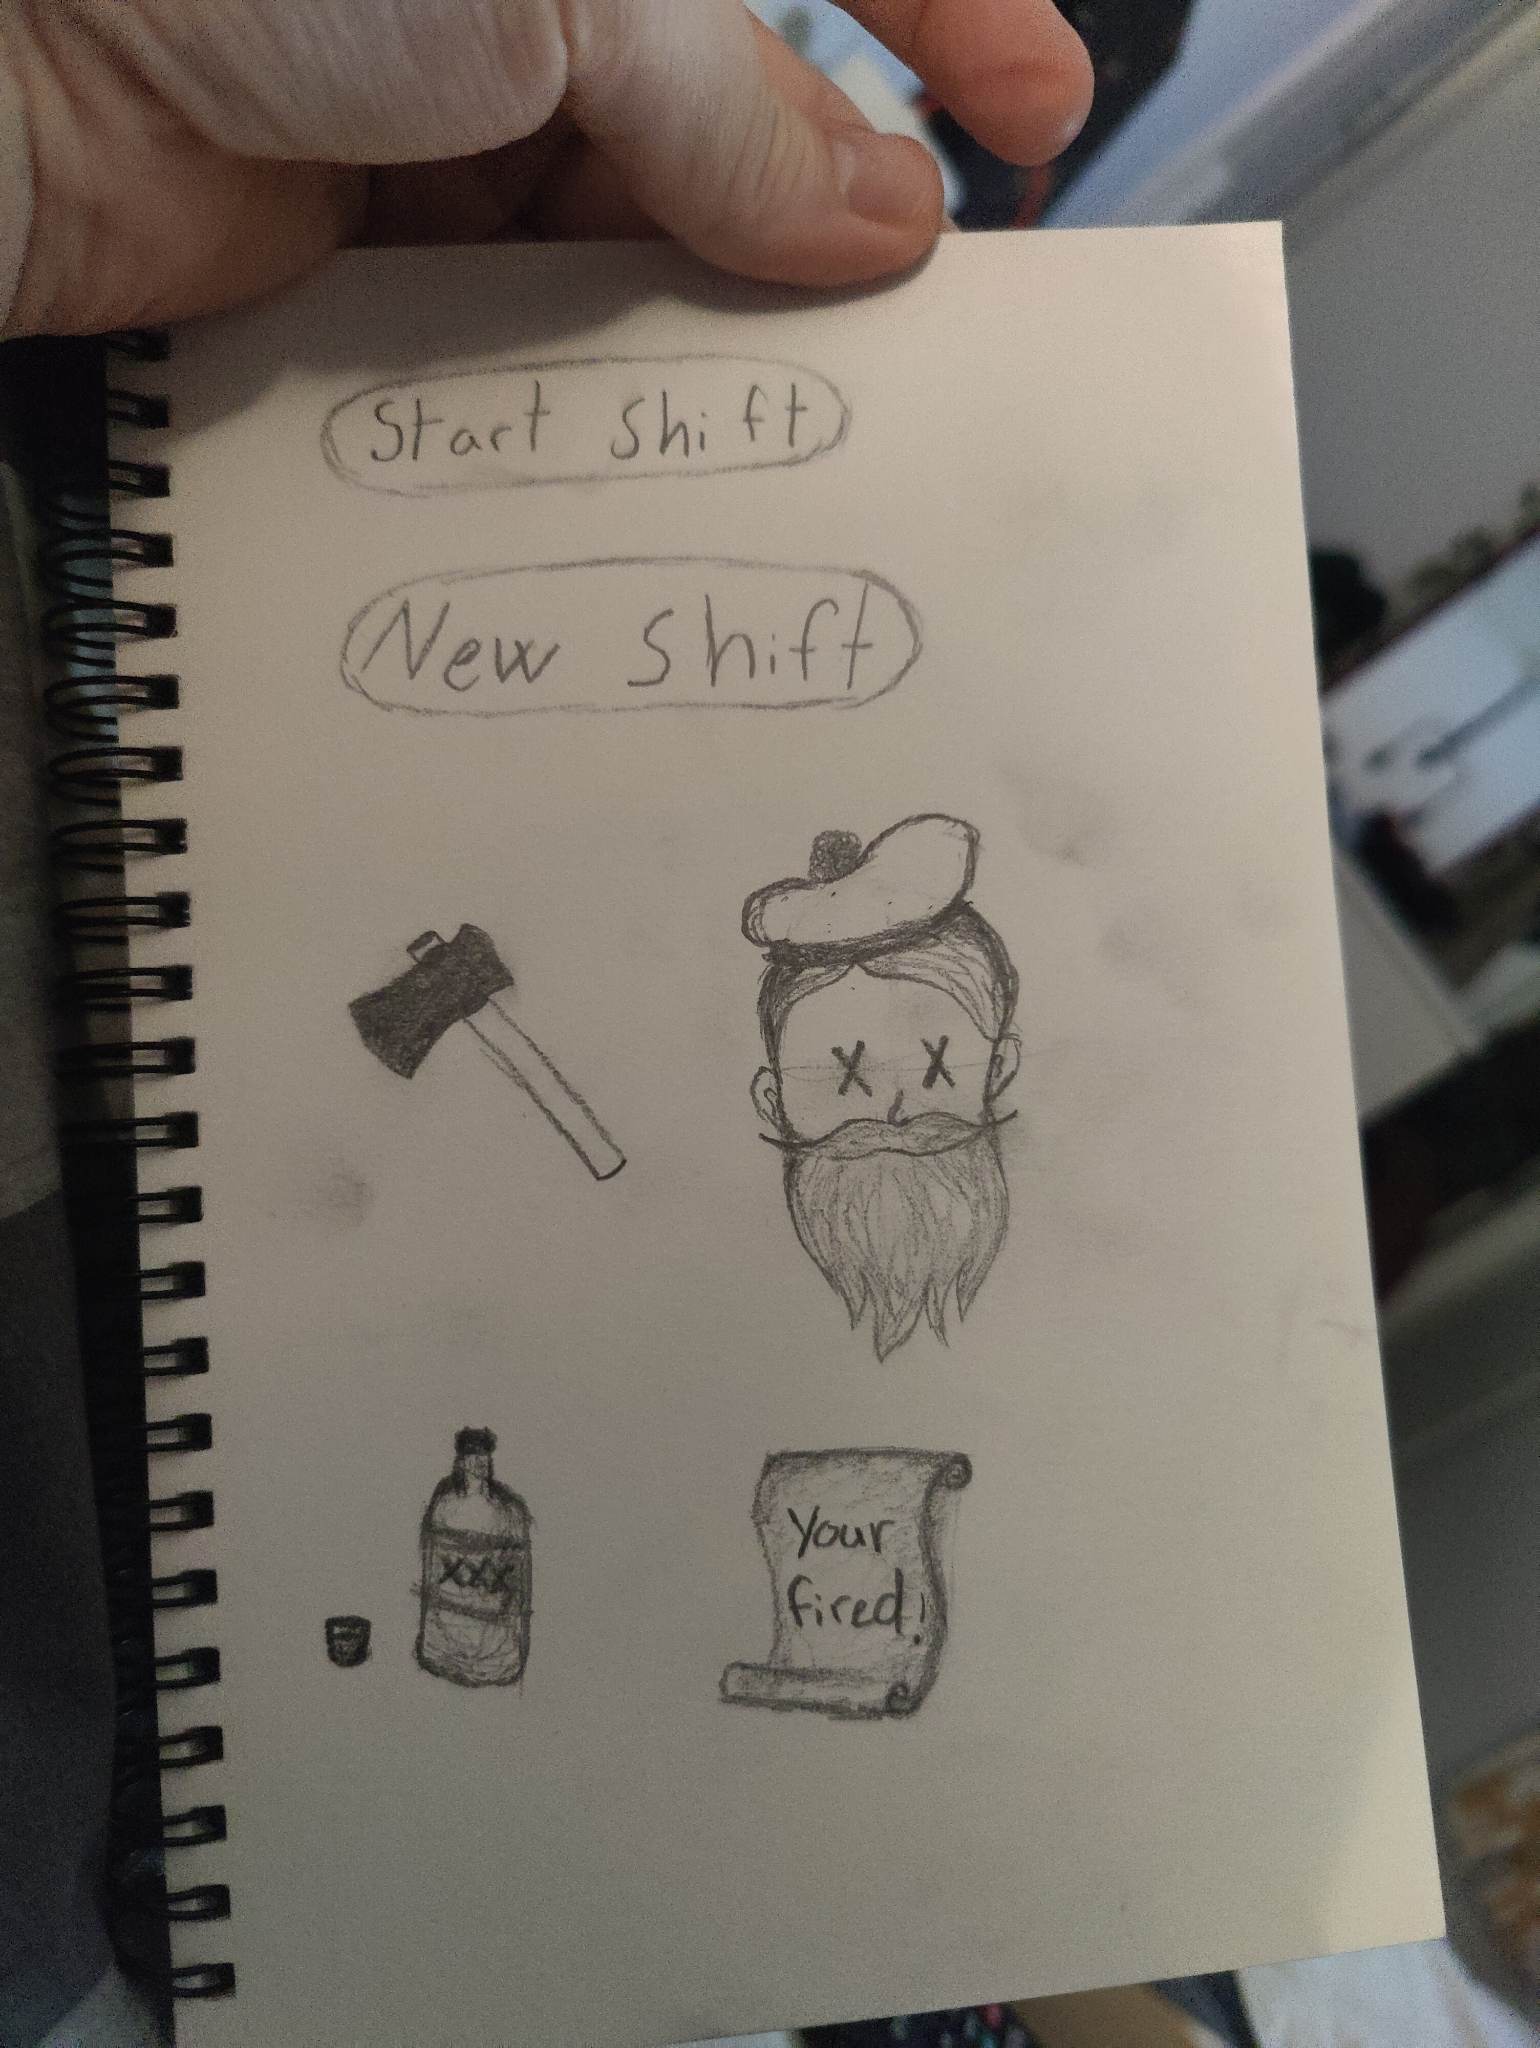 Start shift
New shift
x x
xxx
Your
fired!